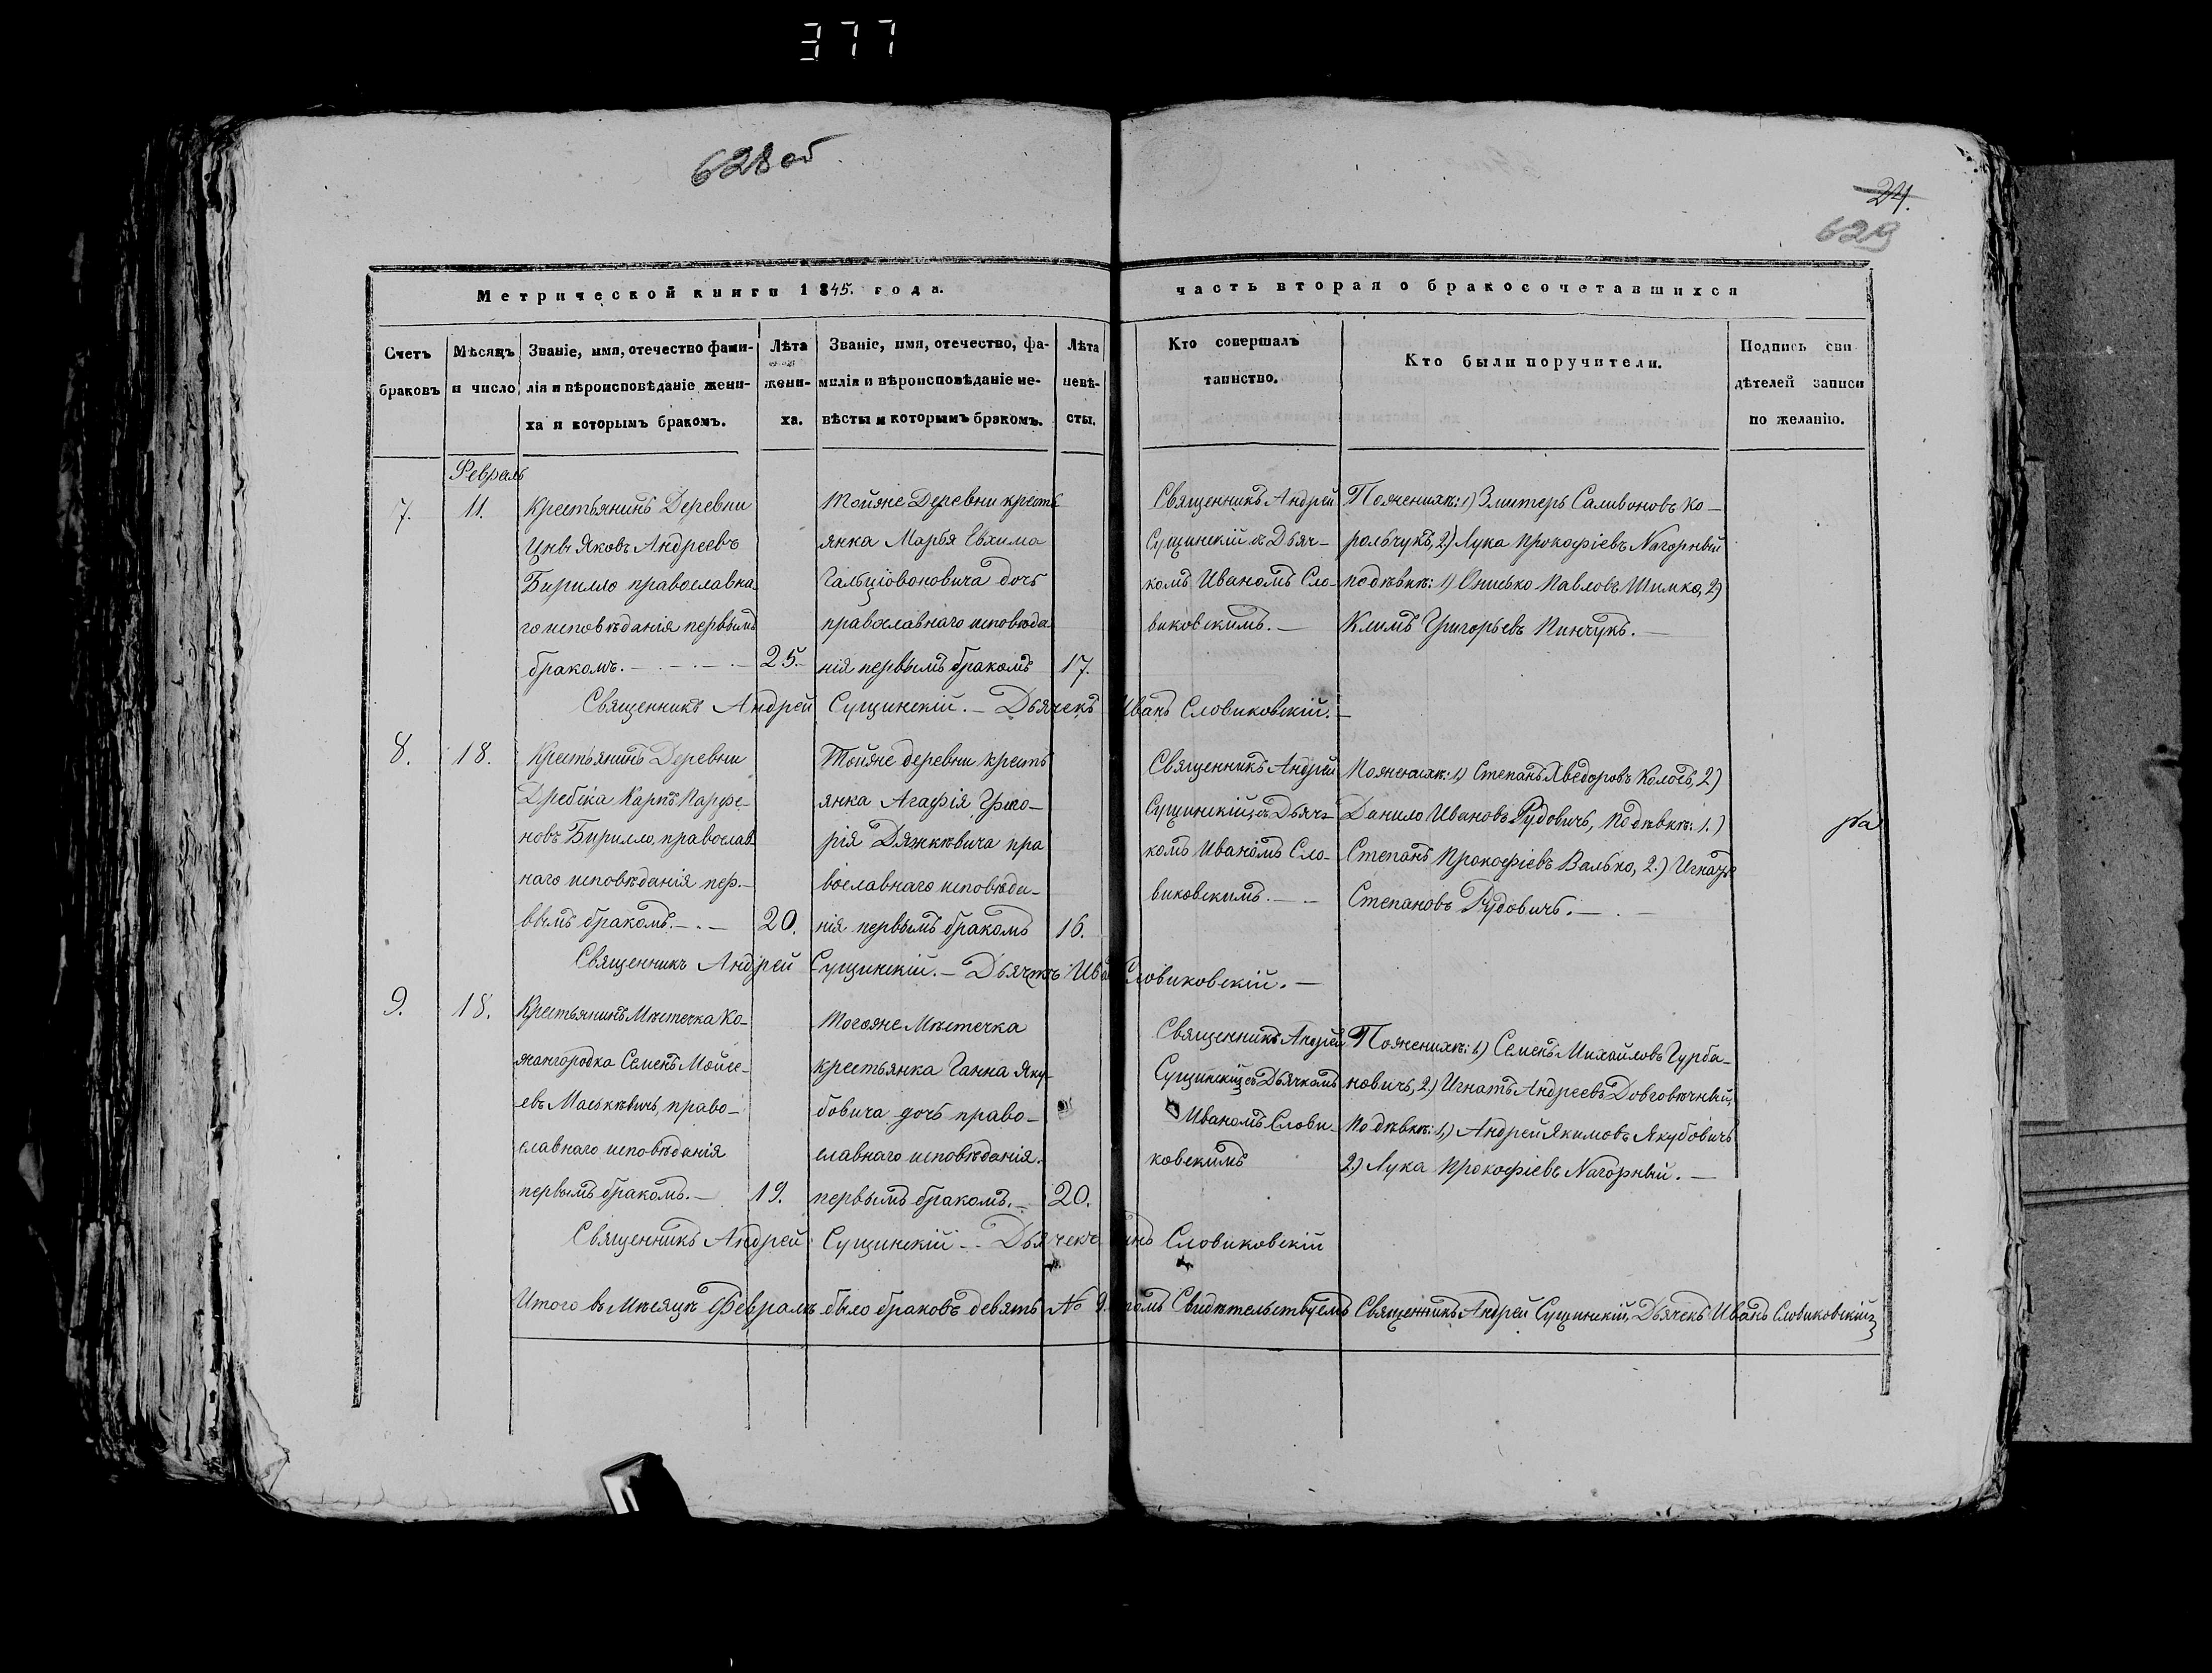 377
628 об
24.
629
Метрической книги 1845. года.
часть вторая о бракосочетавшихся
Счетъ браковъ
Мѣсяцъ и число
Званіе, имя, отечество фами-
лія и вѣроисповѣданіе жени-
ха и которымъ бракомъ.
Лѣта жени-
ха.
Званіе, имя, отечество, фа-
милія и вѣроисповѣданіе не-
вѣсты и которымъ бракомъ.
Лѣта
невѣ-
сты.
Кто совершалъ
таинство.
Кто были поручители.
Подпись сви
дѣтелей записи
по желанію.
Февраль
7.
11.
Крестьянинъ Деревни
Яковъ Андреевъ
Бирилло православна-
го исповѣданія первымъ
бракомъ.
25.
Тойяже Деревни кресть
янка Марья Евхима
дочь
православнаго исповѣда
нія первымъ бракомъ
17.
Священникъ Андрей
Сущинскій съ Дьяч-
комъ Иваномъ Сло-
виковскимъ.
Поженихѣ: 1) Змитеръ Саливоновъ Ко-
рольчукъ, 2) Лука Прокофіевъ Нагорный
подѣвкѣ: 1) Онисько Павловъ Шимко, 2)
Климъ Григорьевъ Пинчукъ.
Священникъ Андрей Сущинскій. – Дьячекъ Иванъ Словиковскій.
8.
18.
Крестьянинъ Деревни
Дребска Карпъ Парфе-
новъ Бирилло, православ
наго исповѣданія пер-
вымъ бракомъ.
20.
Тойяже деревни кресть
янка Агафія Григо-
рія Дяжкѣвича пра
вославнаго исповѣда-
нія первымъ бракомъ
16.
Священникъ Андрей
Сущинскій съ Дьяч-
комъ Иваномъ Сло-
виковскимъ.
Поженихѣ: 1) Степанъ Хведоровъ Колосъ, 2)
Данило Ивановъ Рудовичъ, Подѣвкѣ: 1.)
Степанъ Прокофіевъ Валько, 2.) Игнатъ
Степановъ Рудовичъ.
Священникъ Андрей Сущинскій. – Дьячекъ Ива Словиковскій.
9.
18.
Крестьянинъ Мѣстечка Ко-
жангородка Семенъ Мойсе-
евъ Маськѣвичъ, право-
славнаго исповѣданія
первымъ бракомъ.
19.
Тогожже Мѣстечка
крестьянка Ганна Яку-
бовича дочь право-
славнаго исповѣданія.
первымъ бракомъ.
20.
Священникъ Андрей
Сущинскій съ Дьячкомъ
Иваномъ Слови-
ковскимъ
Поженихѣ: 1.) Семенъ Михайловъ Гурба-
новичъ, 2.) Игнатъ Андреевъ Довговѣчный,
Подѣвкѣ: 1,) Андрей Якимовъ Якубовичъ
2.) Лука Прокофіевъ Нагорный.
Священникъ Андрей Сущинскій. – Дьячекъ Словиковскій
Итого въ Мѣсяцѣ Февралѣ было браковъ девять № 9. Свидѣтельствуемъ Священникъ Андрей Сущинскій, Дьячекъ Иванъ Словиковскій